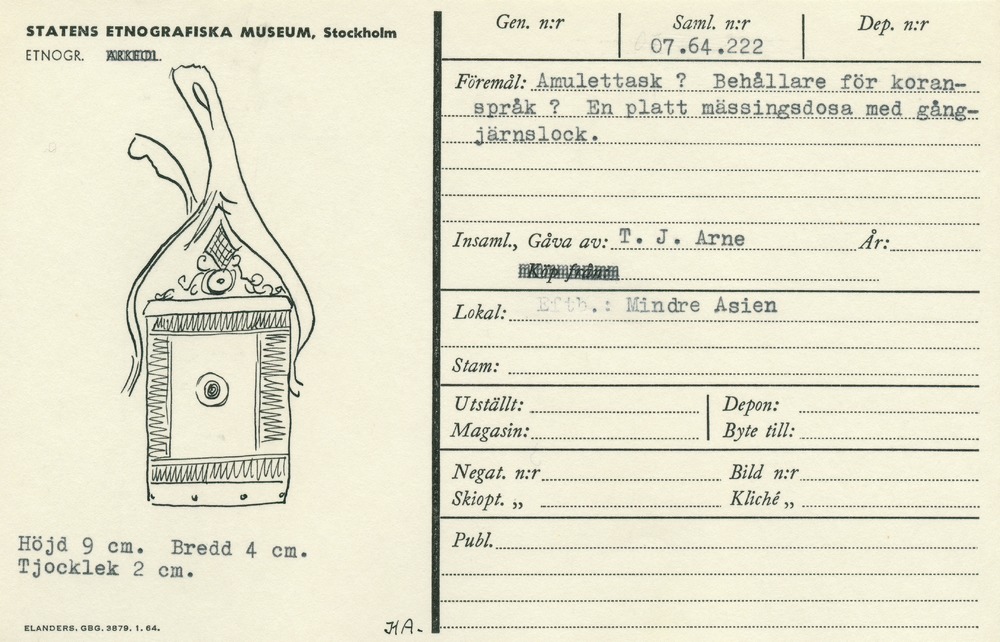 STATENS ETNOGRAFISKA MUSEUM, Stockholm
ETNOGR. ARKEOL.
Höjd 9 cm. Bredd 4 cm.
Tjocklek 2 cm.
ELANDERS. GBG. 3879. 1. 64.
HA-
Gen. n:r
Saml. n:r
07.64.222
Dep. n:r
Föremål: Amulettask ? Behållare för koran-
språk ? En platt mässingsdosa med gång-
järnslock.
Insaml., Gåva av: T. J. Arne År:
Köp från
Lokal: Eftb.: Mindre Asien
Stam:
Utställt: Depon:
Magasin: Byte till:
Negat. n:r Bild n:r
Skiopt. „ Kliché „
Publ.